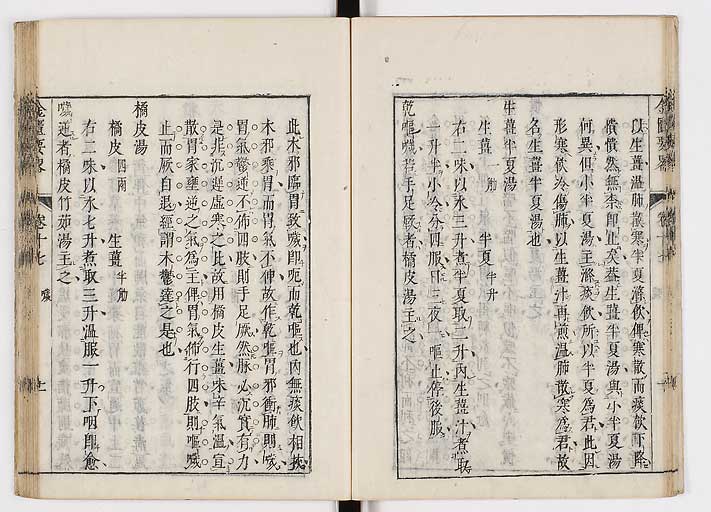 以生薑溫肺散寒半夏滌飲俾寒散而痰飲下降
憒憒然無奈即止矣葢生薑半夏湯與小半夏湯
何異但小半夏湯主滌痰飲所以半夏為君此因
形寒飲冷傷肺以生薑汁再煎溫肺散寒為君故
名生薑半夏湯也
生薑半夏湯
生薑一觔 半夏半升
右二味以水三升煮半夏取二升內生薑汁煮取
一升半小冷分四服日三夜一嘔止停後服
乾嘔噦若手足厥者橘皮湯主之
金匱要略 卷十七 噦 十一
此木邪臨胃致噦即呃而乾嘔也內無痰飲相挾
木邪乘胃而胃氣不伸故作乾嘔胃邪衝肺則噦
胃氣鬱遏不佈四肢則手足厥然脉必沉實有力
是非沉遲虛寒之比故用橘皮生薑味辛氣溫宣
散胃家壅逆之氣為主俾胃氣佈行四肢則嘔噦
止而厥自退經謂木鬱達之是也
橘皮湯
橘皮四兩 生薑半觔
右二味以水七升煮取三升溫服一升下咽即愈
噦逆者橘皮竹茹湯主之